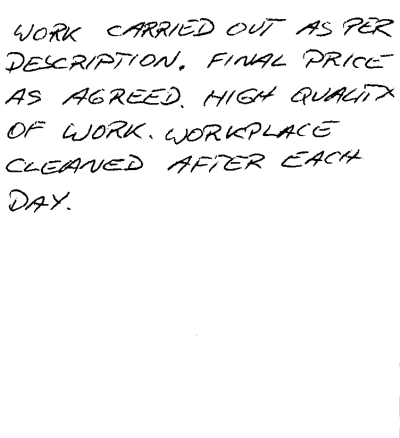 WORK CARRIED OUT AS PER
DESCRIPTION. FINAL PRICE
AS AGREED. HIGH QUALITY
OF WORK. WORKPLACE
CLEANED AFTER EACH
DAY.